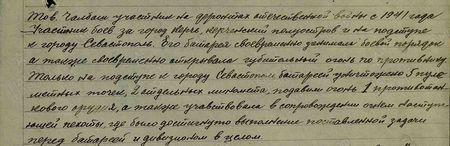 Тов. Чалбаш участник на фронтах отечественной войны с 1941 года
Участник боев за город Керчь, керченский полуостров и на подступе
к городу Севастополь. Его батарея своевременно занимала боевой порядок
а также своевременно открывала губительный огонь по противнику.
Только на подступе к городу Севастополь батареей уничтожено 5 пуле-
метных точек, 2 отдельных миномета, подавили огонь 1 противотан-
кового орудия, а также участвовала в сопровождении огнем наступа-
ющей пехоты, где было достигнуто выполнение поставленной задачи
перед батареей и дивизионом в целом.